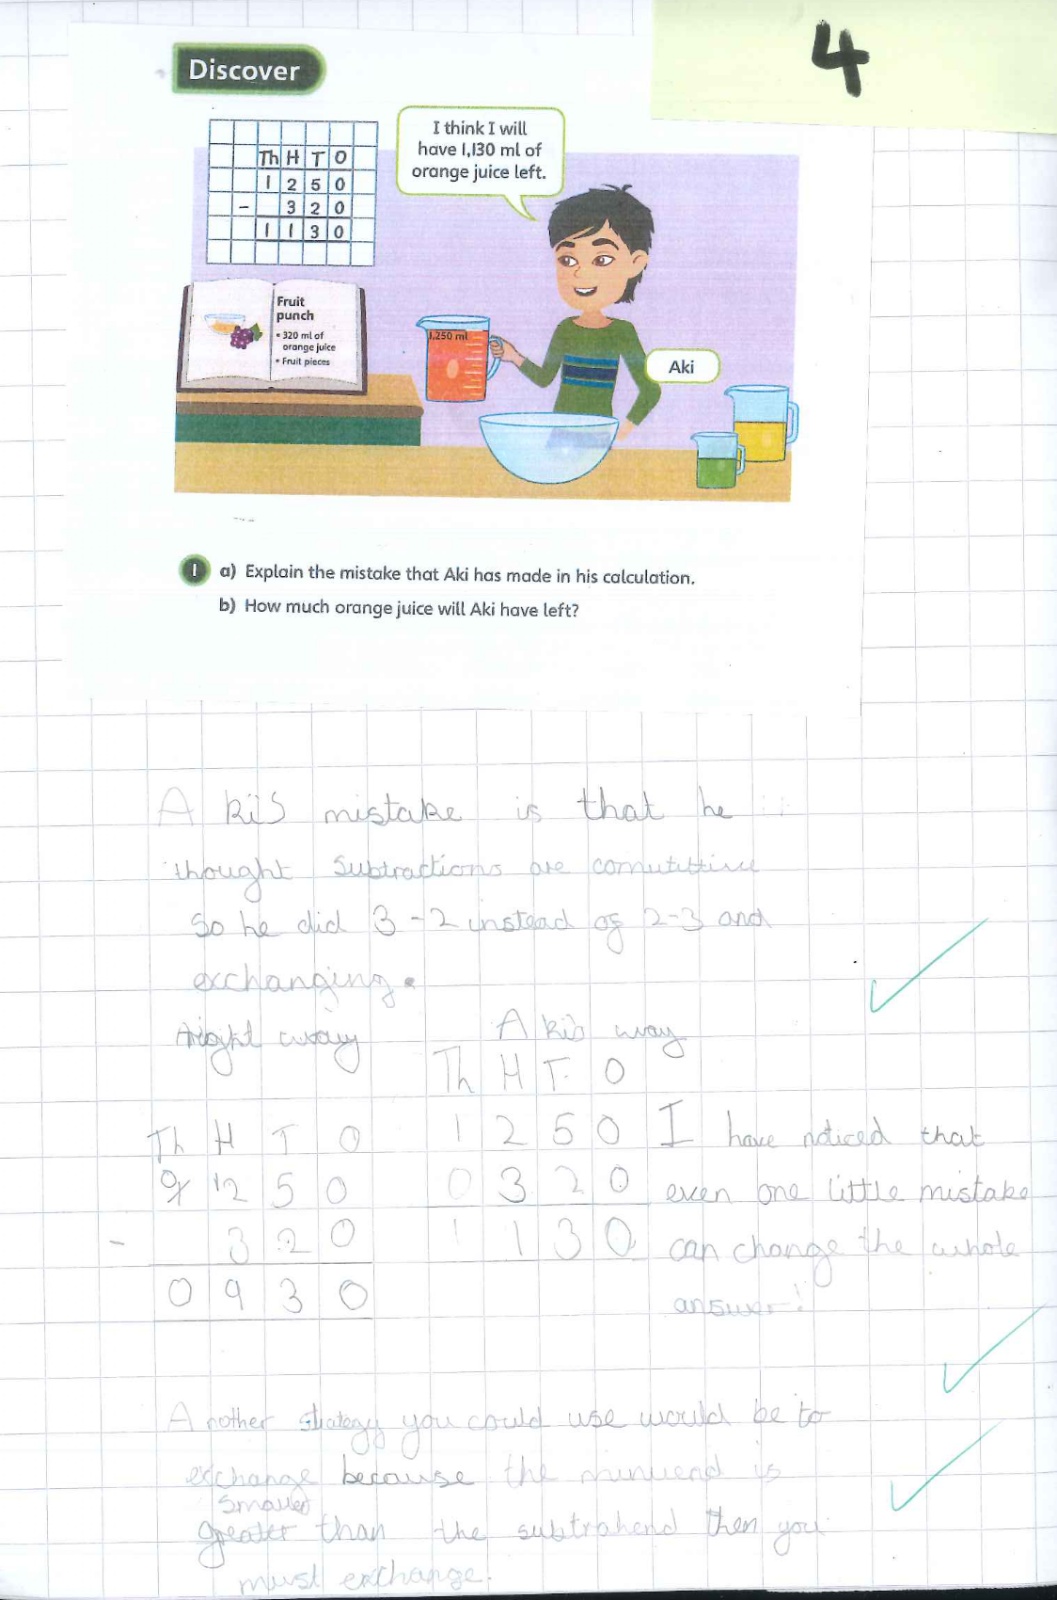 4
Discover
Th H T O
1 2 5 0
- 3 2 0
1 1 3 0
I think I will
have 1,130 ml of
orange juice left.
Fruit
punch
• 320 ml of
orange juice
• Fruit pieces
1,250 ml
Aki
1 a) Explain the mistake that Aki has made in his calculation.
b) How much orange juice will Aki have left?
Akis mistake is that he
thought subtractions are comutitive
so he did 3-2 instead of 2-3 and
exchanging.
right away
Th H T O
0 1 12 5 0
- 3 2 0
0 9 3 0
Akis way
Th H T O
1 2 5 0
0 3 2 0
1 1 3 0
I have noticed that
even one little mistake
can change the whole
answer!
Another strategy you could use would be to
exchange because the minuend is
smaller
greater than the subtrahend then you
must exchange.